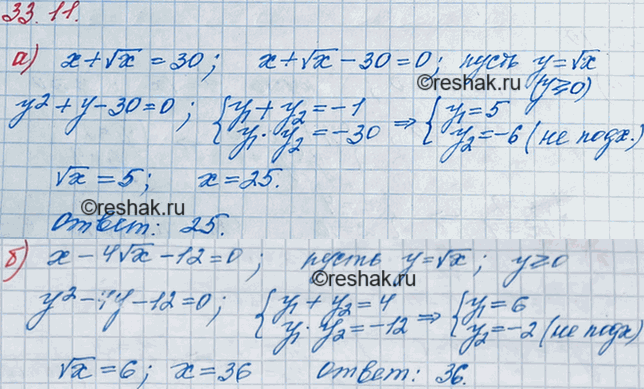 33.11.
а) x+√x=30; x+√x-30=0; пусть y=√x
©reshak.ru (y≥0)
y²+y-30=0; {y₁+y₂=-1 ⇒ {y₁=5
y₁·y₂=-30 y₂=-6 (не подх.)
√x=5; x=25.
©reshak.ru
Ответ: 25.
б) x-4√x-12=0; пусть y=√x; y≥0
©reshak.ru
y²-4y-12=0; {y₁+y₂=4 ⇒ {y₁=6
y₁·y₂=-12 y₂=-2 (не подх)
√x=6; x=36 Ответ: 36.